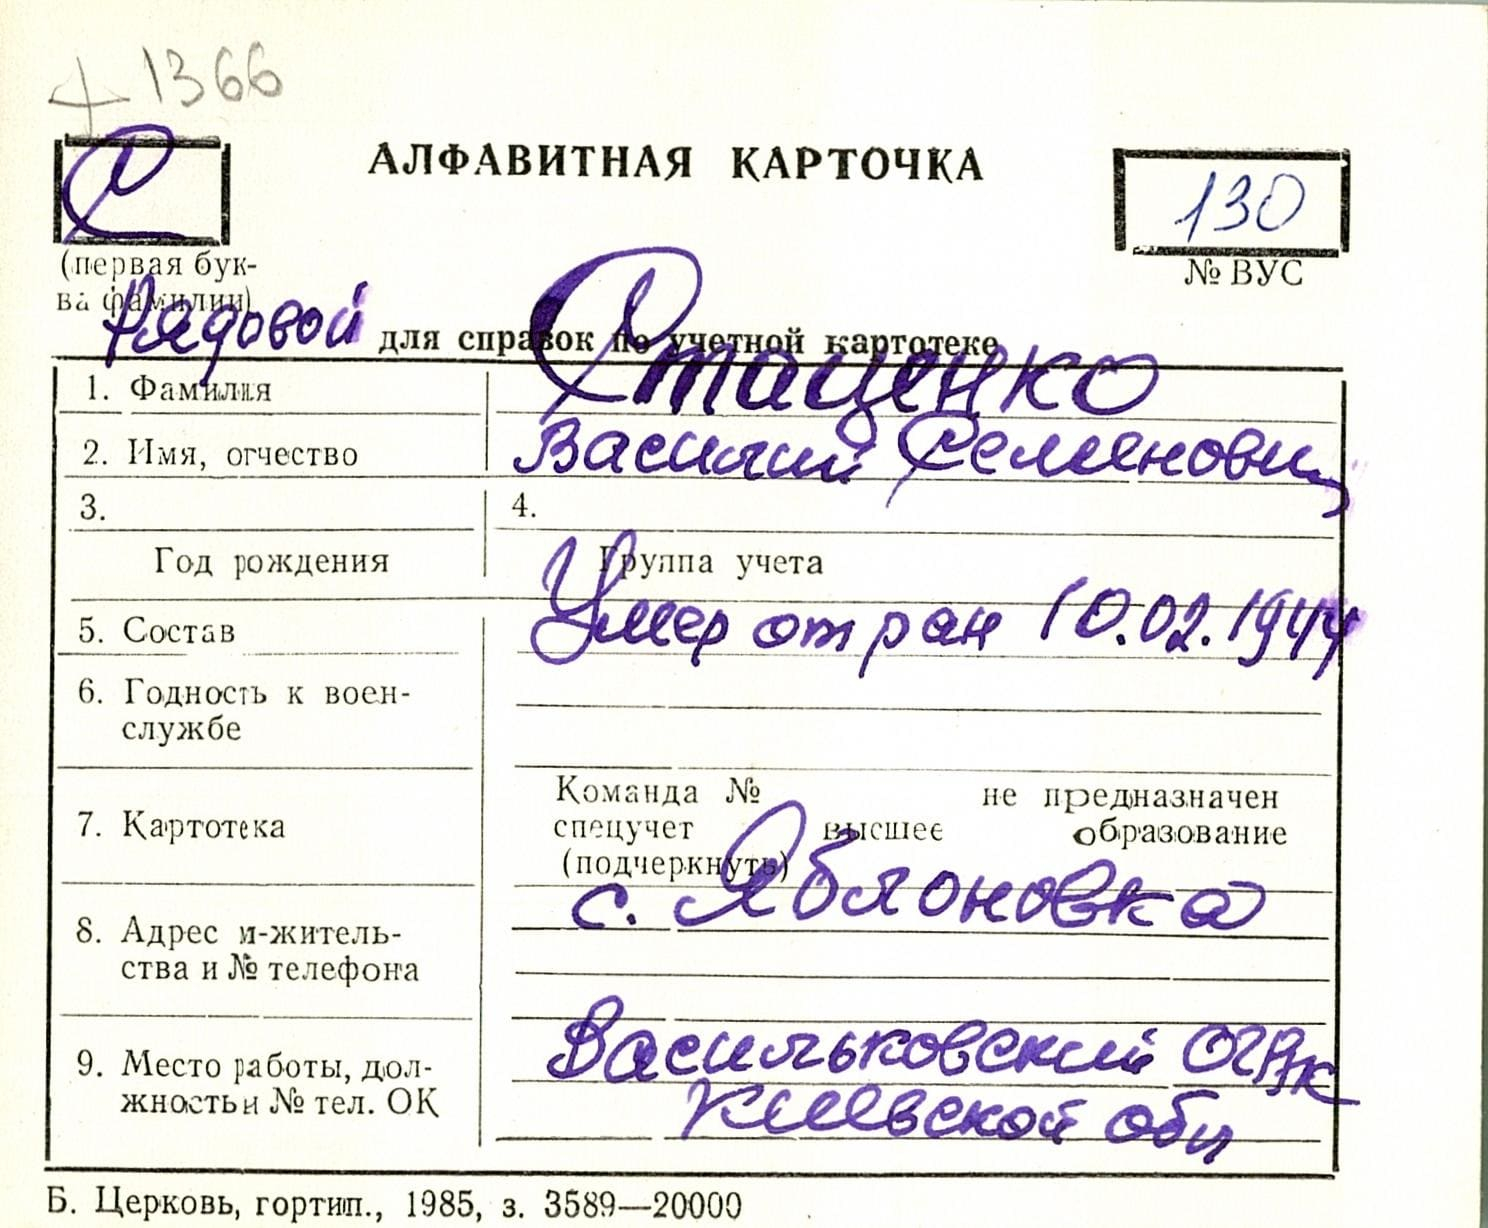 + 1366
С
АЛФАВИТНАЯ КАРТОЧКА
130
(первая бук-
ва фамилии)
№ ВУС
Рядовой
для справок по учетной картотеке
1. Фамилия
Стаценко
2. Имя, отчество
Василий Семенович
3.
4.
Год рождения
Группа учета
5. Состав
Умер от ран 10.02.1944
6. Годность к воен-
службе
7. Картотека
Команда № не предназначен
спецучет высшее образование
(подчеркнуть)
8. Адрес м-житель-
ства и № телефона
с. Яблоновка
9. Место работы, дол-
жность и № тел. ОК
Васильковский ОГВК
Киевской обл
Б. Церковь, гортип., 1985, з. 3589—20000